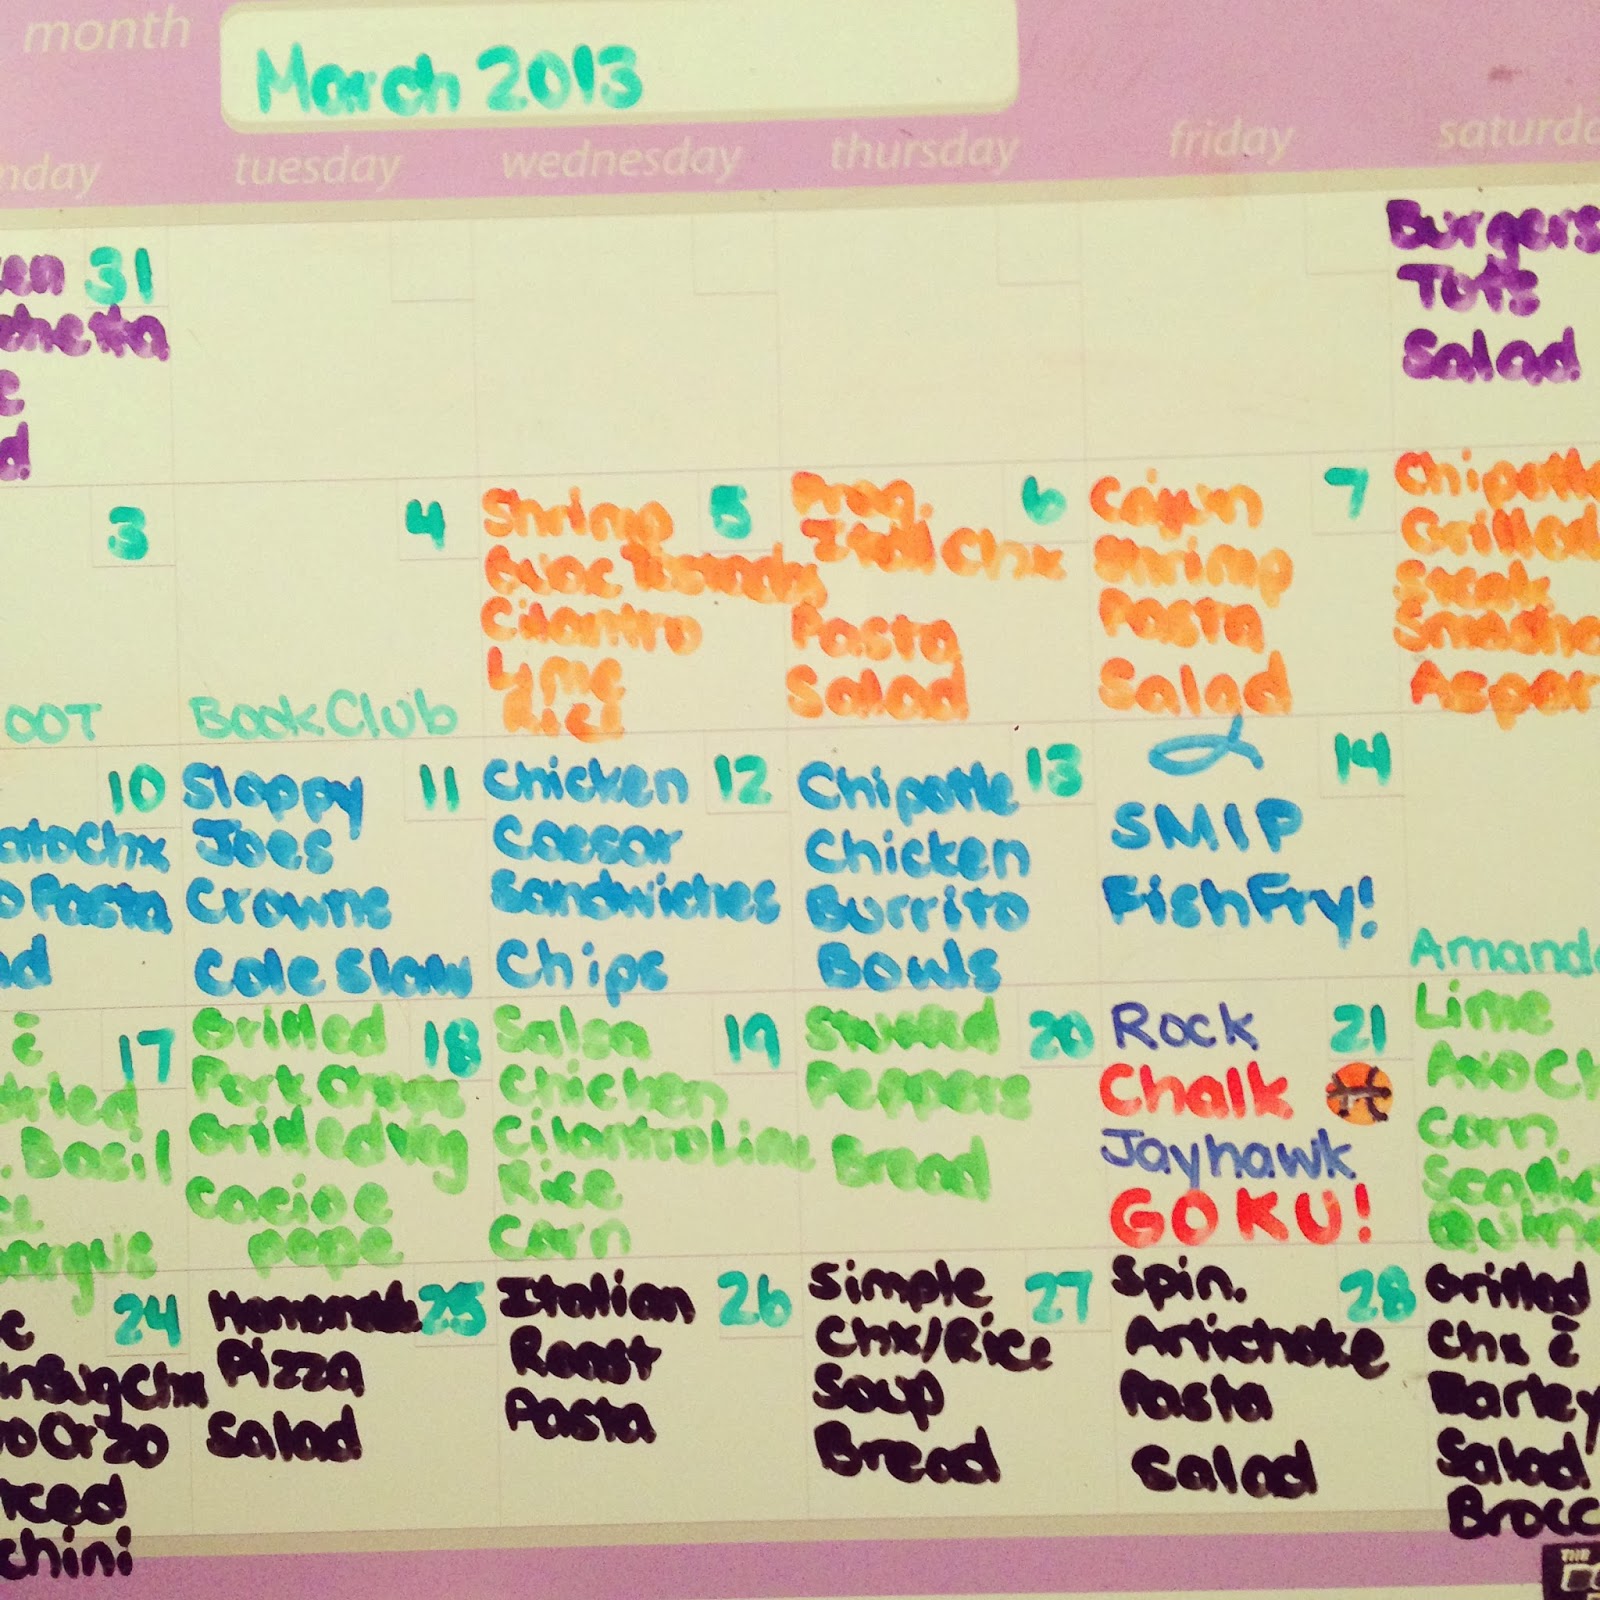 month
March 2013
nday tuesday wednesday thursday friday saturda
en 31
chetta
e
d
Burgers
Tots
Salad
3
OOT
4
Book Club
Shrimp 5
Guac Tostadas
Cilantro
Lime
Rice
Prog. 6
Itall Chx
Pasta
Salad
Cajun 7
Shrimp
Pasta
Salad
Chipotle
Grilled
Steak
Smashe
Aspar
10
atoChx
o Pasta
ad
Sloppy 11
Joes
Crowns
Cole Slaw
Chicken 12
Caesar
Sandwiches
Chips
Chipotle 13
Chicken
Burrito
Bowls
14
SMIP
Fish Fry!
Amanda
c̄ 17
dried
. Basil
argus
Grilled 18
Pork Chops
Grilled veg
Cacio e
pepe
Salsa 19
Chicken
Cilantro Lime
Rice
Corn
Stuffed 20
Peppers
Bread
Rock 21
Chalk
Jayhawk
GO KU!
Lime
Avo Ch
Corn
Quino
24
Chx
o Orzo
chini
Homemade 25
Pizza
Salad
Italian 26
Roast
Pasta
Simple 27
Chx/Rice
Soup
Bread
Spin. 28
Artichoke
Pasta
Salad
Grilled
Chx c̄
Barley
Salad
Brocc
THE